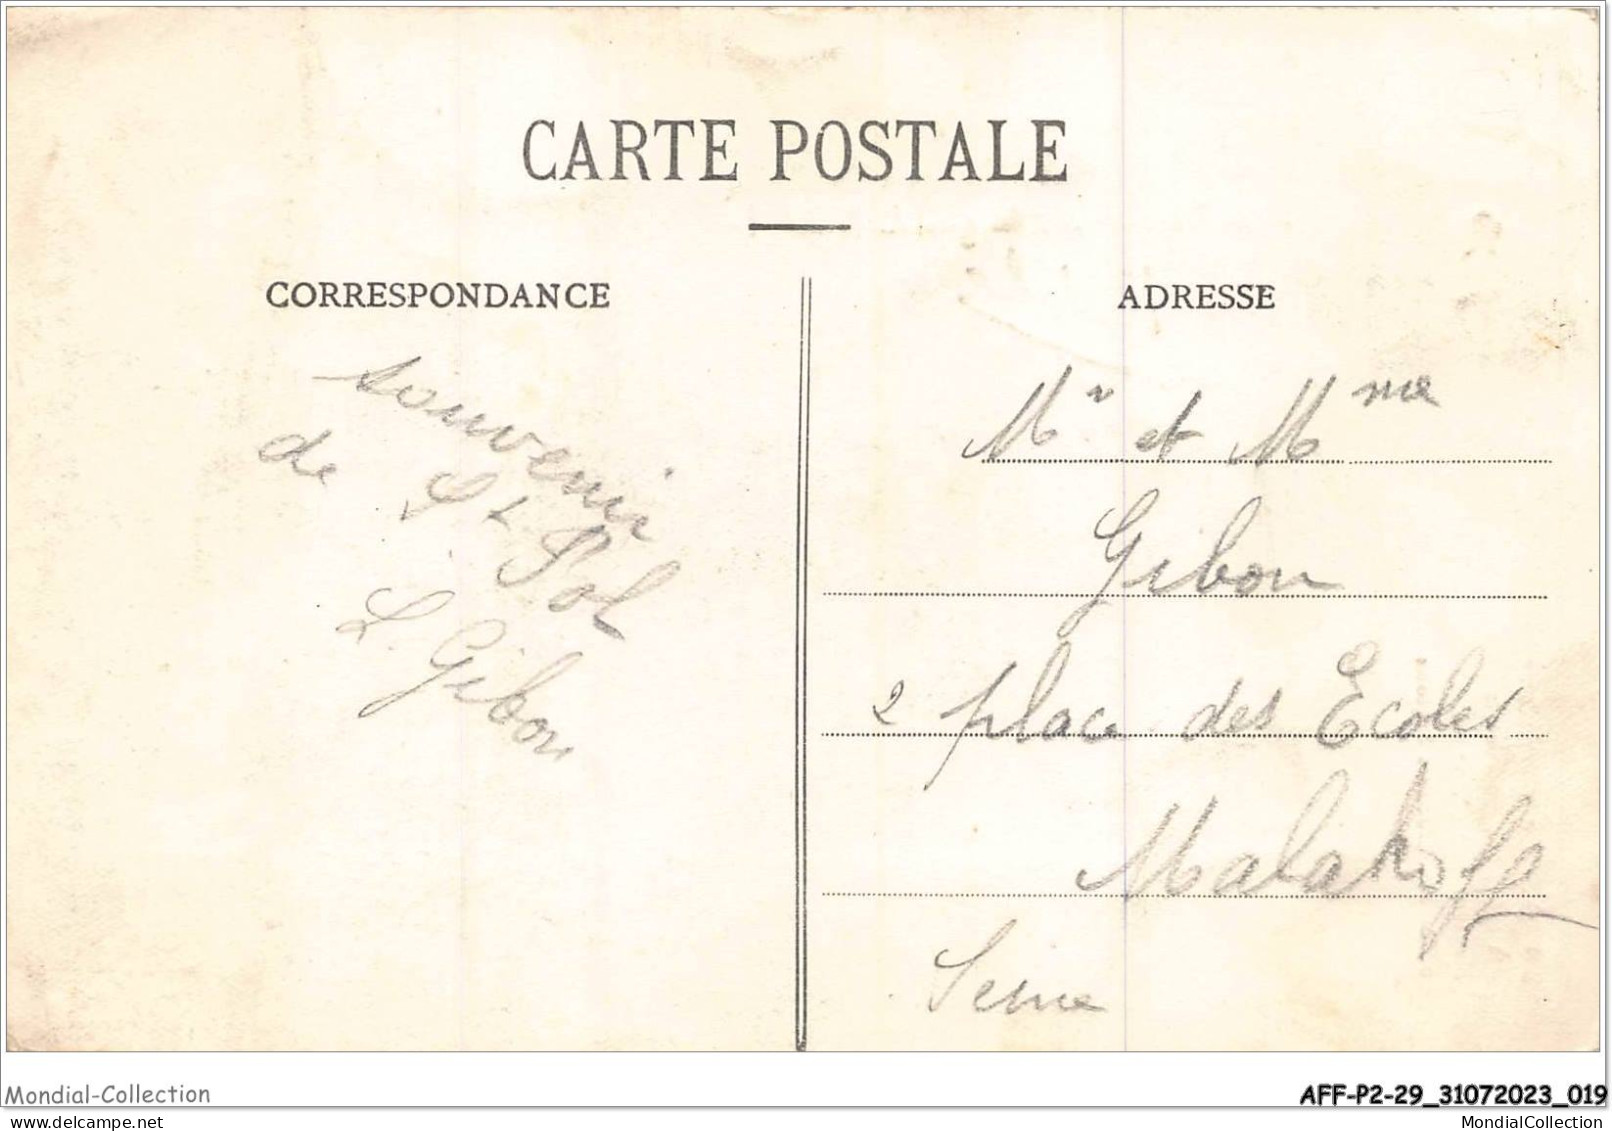 CARTE POSTALE
CORRESPONDANCE
souvenir
de St Pol
L. Gibon
ADRESSE
Mr et Mme
Gibon
2 place des Ecoles
Malakoff
Seine
Mondial-Collection
AFF-P2-29_31072023_019
delcampe.net
MondialCollection